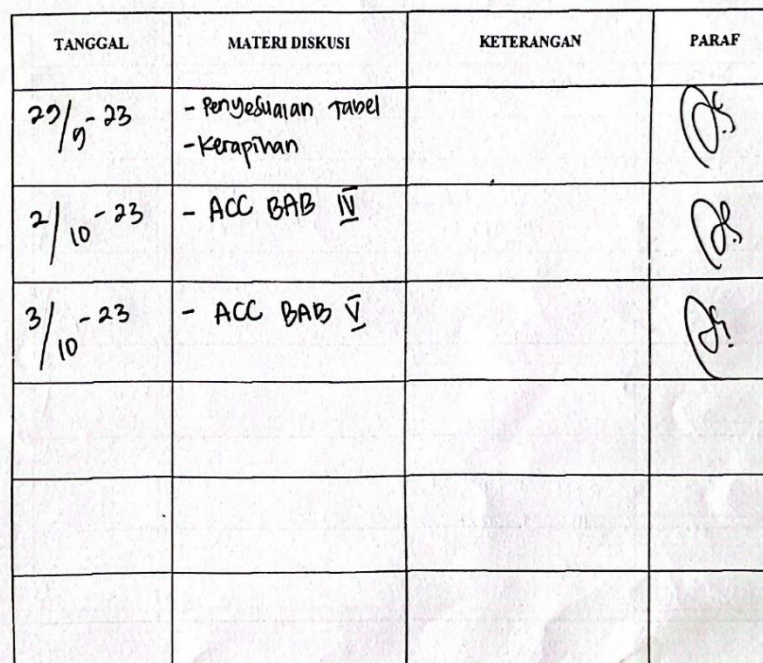 TANGGAL MATERI DISKUSI KETERANGAN PARAF
29/9-23 - Penyesuaian Tabel
- Kerapihan
2/10-23 - ACC BAB IV
3/10-23 - ACC BAB V